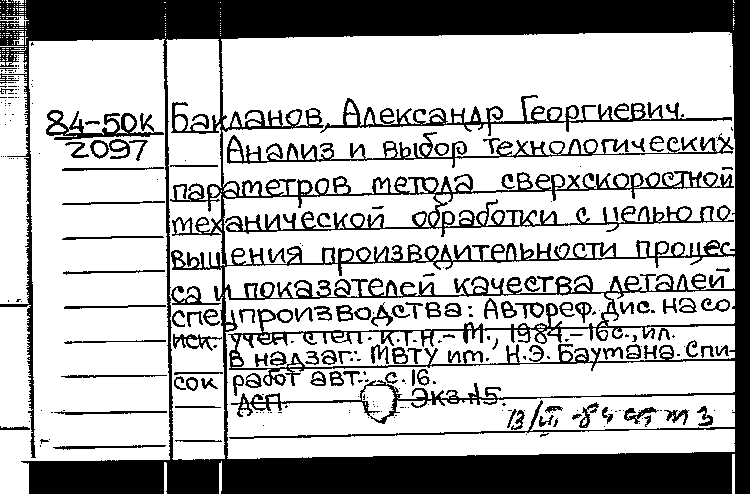 84-50к Бакланов, Александр Георгиевич.
2097 Анализ и выбор технологических
параметров метода сверхскоростной
механической обработки с целью по-
вышения производительности процес-
са и показателей качества деталей
спецпроизводства: Автореф. дис. на со-
иск. учен. степ. к.т.н. - М., 1984. - 16с., ил.
В надзаг.: МВТУ им. Н.Э. Баумана. Спи-
сок работ авт.: с. 16.
ДСП. Экз. №5.
13/III -84